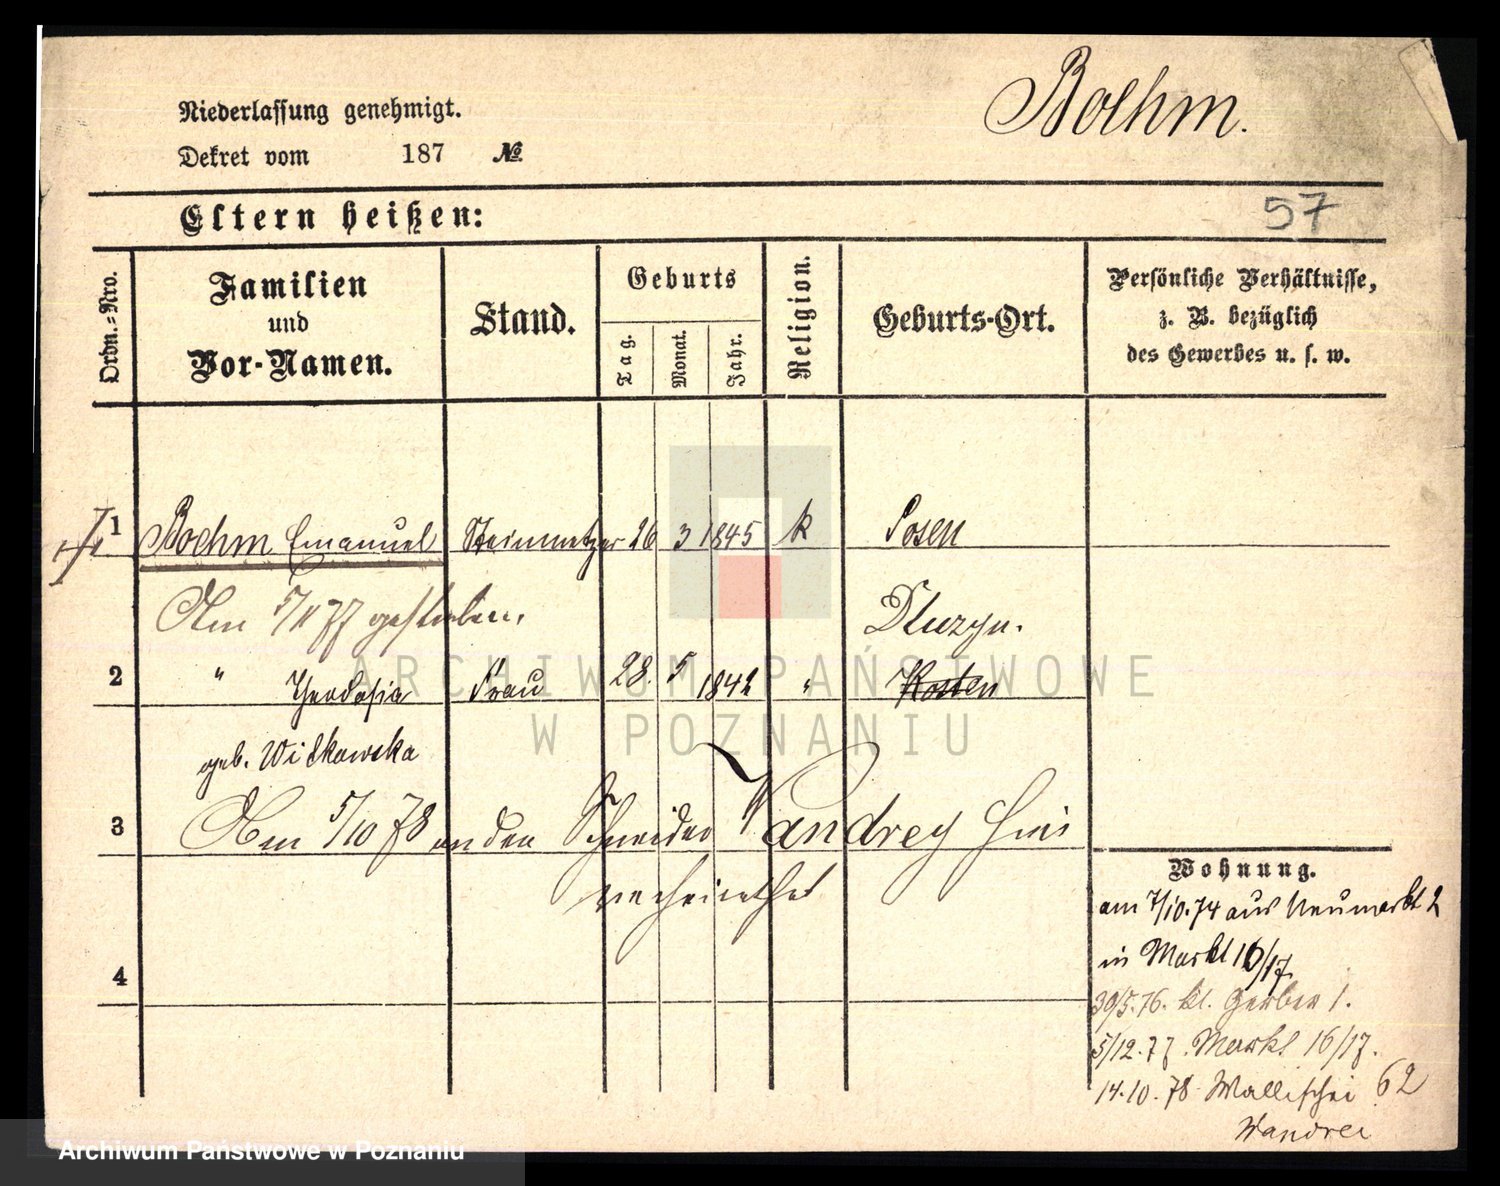 Boehm.
Niederlassung genehmigt.
Dekret vom 187 №
Eltern heißen:
57
Ordn.-Nro.
Familien und Vor-Namen.
Stand.
Geburts
Tag.
Monat.
Jahr.
Religion.
Geburts-Ort.
Persönliche Verhältnisse,
z. B. bezüglich
des Gewerbes u. s. w.
1 Boehm Emanuel Steinmetzer 26 3 1845 k Posen
Am 5/11 77 gestorben.
Dluzyn.
2 " Theodosia Frau 28. 5 1842 " Kosten
geb. Witkowska
3 Am 5/10 78 an den Schneider Vandrey hier
verheirathet
4
Wohnung.
am 7/10.74 aus Neumarkt 2
in Markt 16/17
30/5.76. kl. Gerber 1.
5/12.77. Markt 16/17.
14.10.78 Wallischei 62
Wandrei
ARCHIWUM PAŃSTWOWE
W POZNANIU
Archiwum Państwowe w Poznaniu